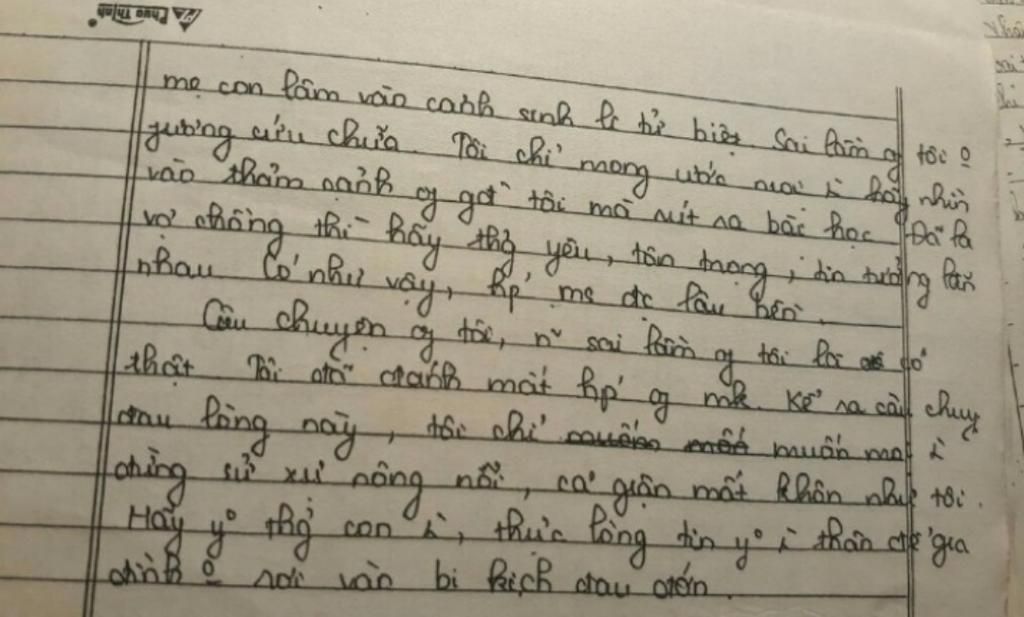 Phuc Thịnh
mẹ con lâm vào cảnh sinh li tử biệt. Sai lầm of tôi o
gương cứu chữa. Tôi chỉ mong ước mọi i hãy nhìn
vào thảm cảnh of gđ tôi mà rút ra bài học. Đã là
vợ chồng thì hãy thg yêu, tôn trọng, tin tưởng lẫn
nhau. Có như vậy, hp' ms đc lâu bền.
Câu chuyện of tôi, n~ sai lầm of tôi là có
thật. Tôi đã đánh mất hp' of mk. Kể ra câu chuy
đau lòng này, tôi chỉ muốn mọi i
đừng sử xự nông nổi, cả giận mất khôn như tôi.
Hãy yo thg con i, thực lòng tin yo i thân để gia
đình o rơi vào bi kịch đau đớn.